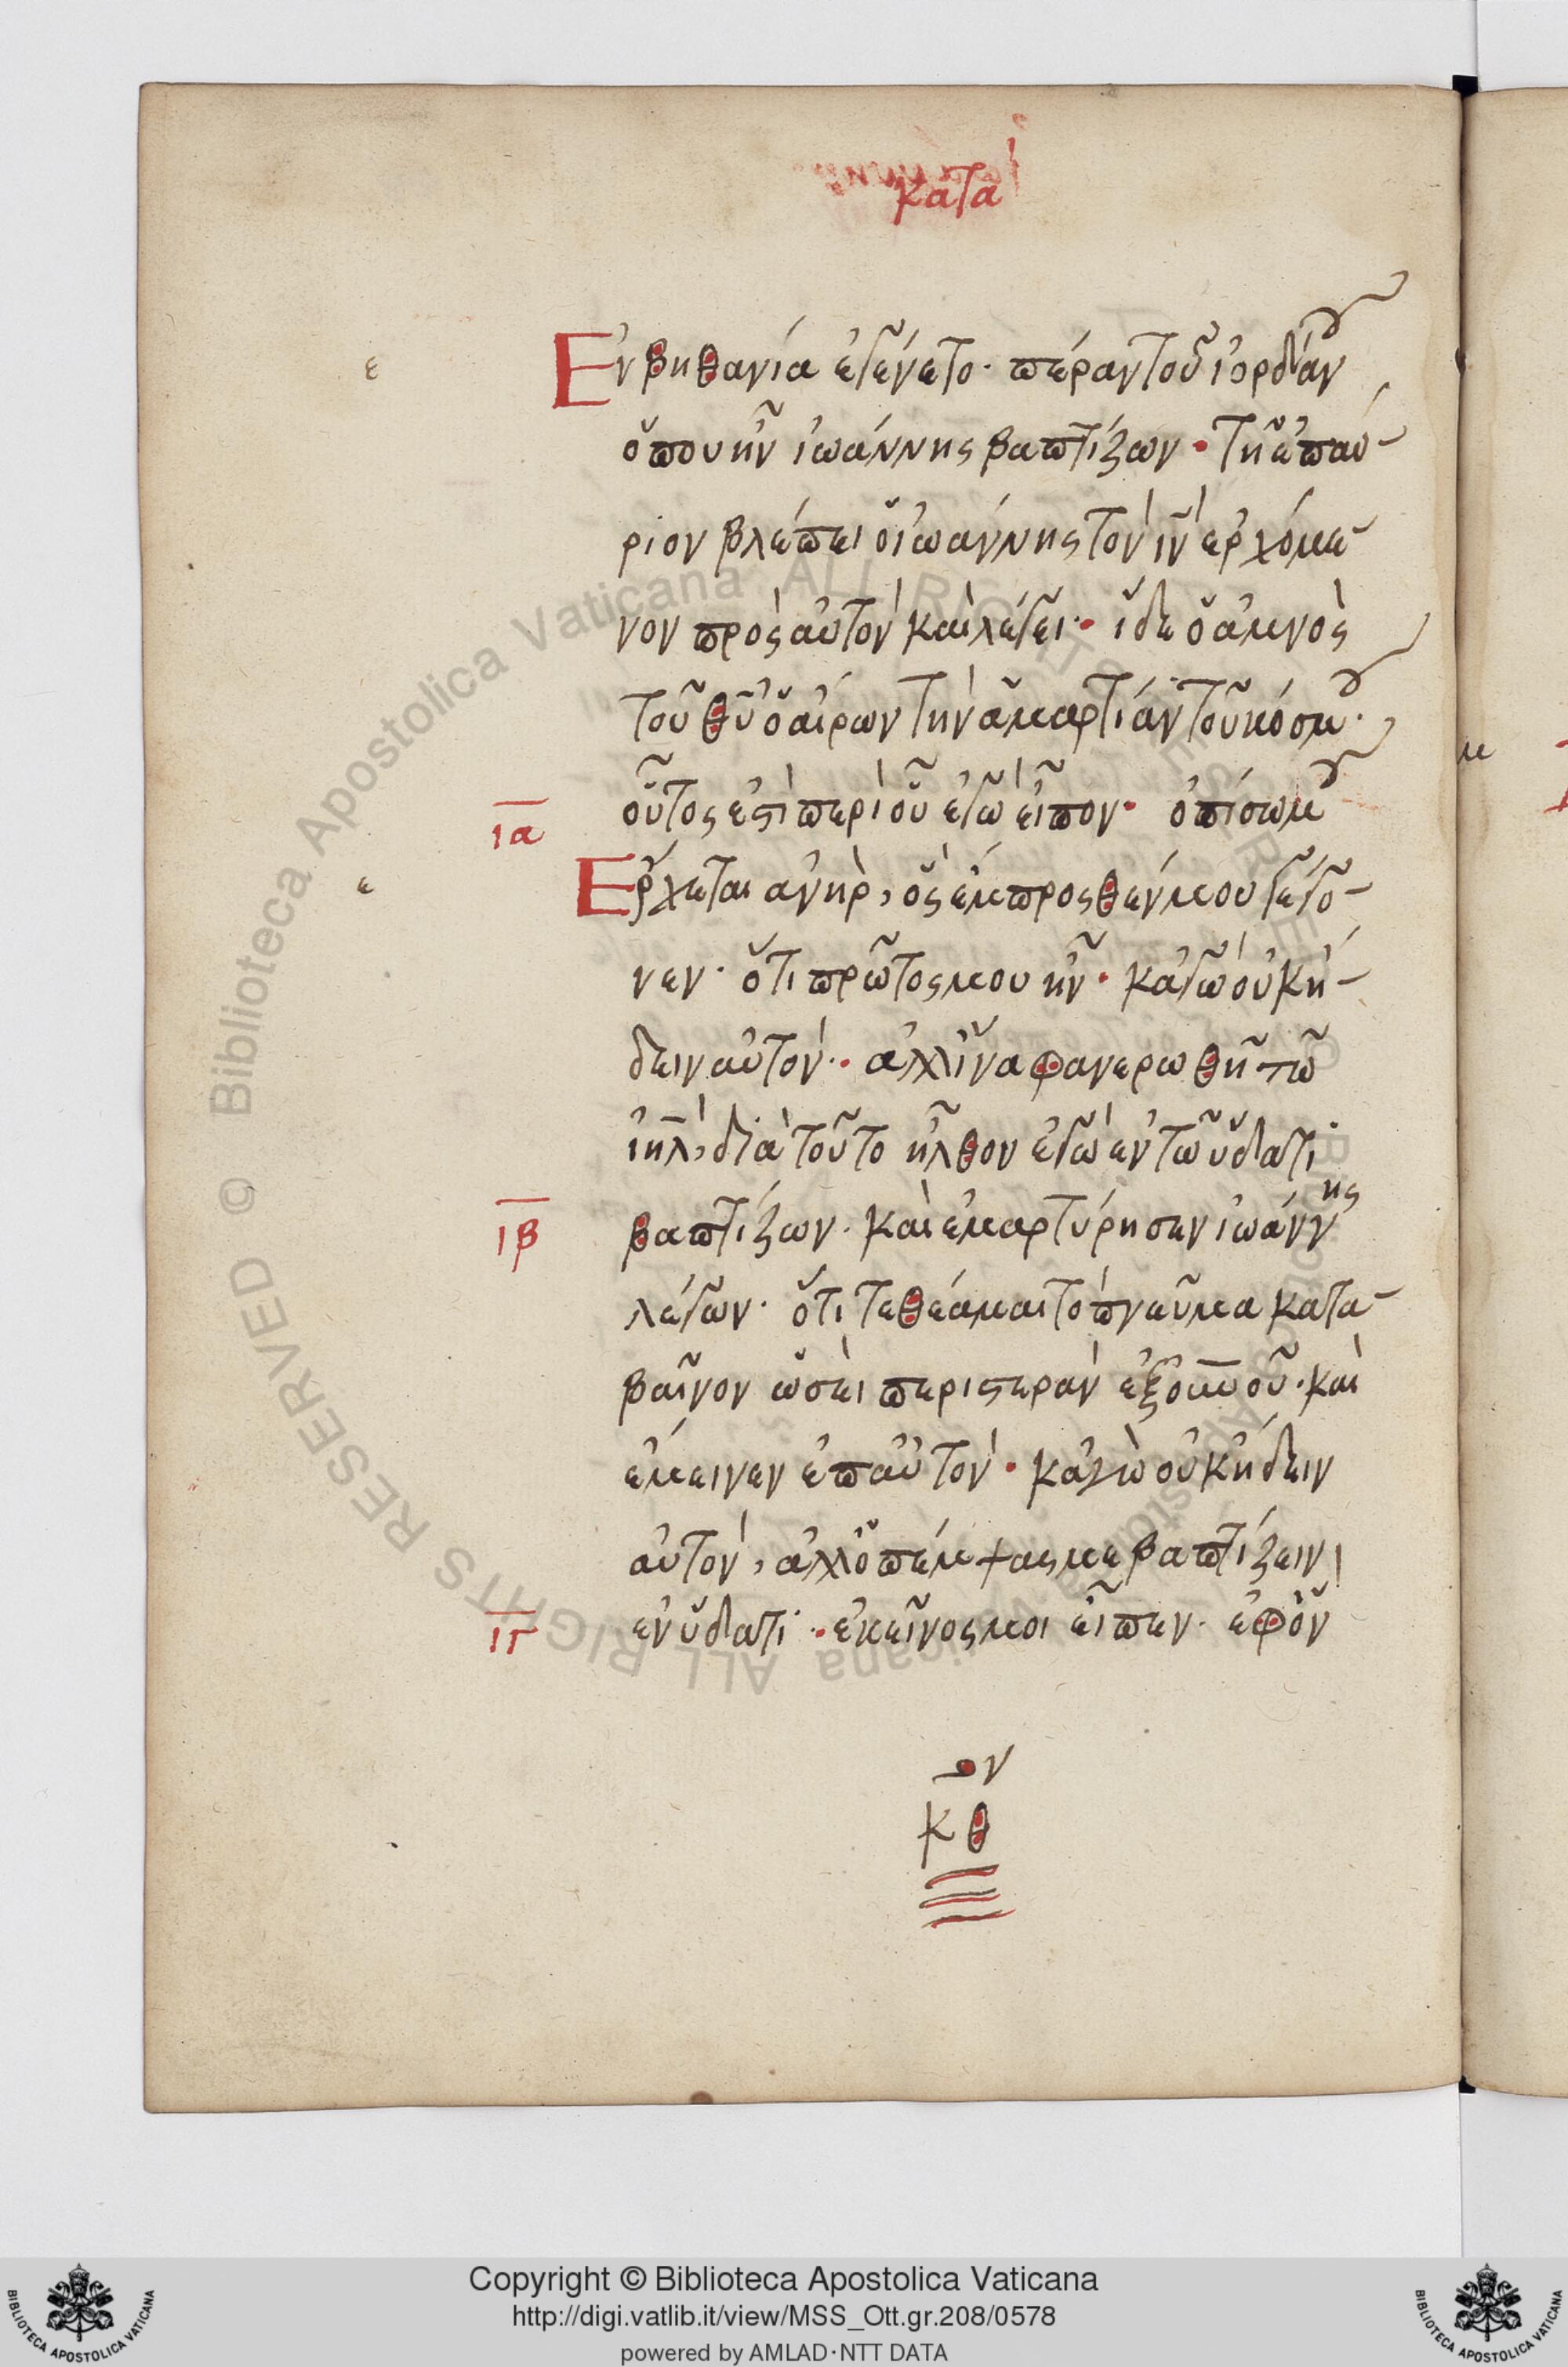 κατὰ
ε
Ἐν βηθανία ἐγένετο· πέραν τοῦ ἰορδάνου
ὅπου ἦν ἰωάννης βαπτίζων· Τῆ ἐπαύ-
ριον βλέπει ὁ ἰωάννης τὸν ιν̅ ἐρχόμε-
νον πρὸς αὐτὸν καὶ λέγει· ἴδε ὁ ἀμνὸς
τοῦ θυ̅ ὁ αἴρων τὴν ἁμαρτίαν τοῦ κόσμου·
ια οὗτός ἐστι περὶ οὗ ἐγὼ εἶπον· ὀπίσω μου
ε
Ἔρχεται ἀνὴρ, ὃς ἔμπροσθέν μου γέγο-
νεν· ὅτι πρῶτος μου ἦν· κἀγὼ οὐκ ἤ-
δειν αὐτόν· ἀλλ' ἵνα φανερωθῆ τῶ
ιηλ̅, διὰ τοῦτο ἦλθον ἐγὼ ἐν τῶ ὕδατι
ιβ βαπτίζων· καὶ ἐμαρτύρησεν ἰωάννης
λέγων· ὅτι τεθέαμαι τὸ πνεῦμα κατα-
βαῖνον ὡσεὶ περιστερὰν ἐξ οὐν̅οῦ· καὶ
ἔμεινεν ἐπ' αὐτόν· κἀγὼ οὐκ ἤδειν
αὐτόν, ἀλλ' ὁ πέμψας με βαπτίζειν
ιγ ἐν ὕδατι· ἐκεῖνός μοι εἶπεν· ἐφ' ὃν
ον
κθ
Biblioteca Apostolica Vaticana ALL RIGHTS RESERVED ©
Copyright © Biblioteca Apostolica Vaticana
http://digi.vatlib.it/view/MSS_Ott.gr.208/0578
powered by AMLAD·NTT DATA
BIBLIOTECA APOSTOLICA VATICANA
BIBLIOTECA APOSTOLICA VATICANA